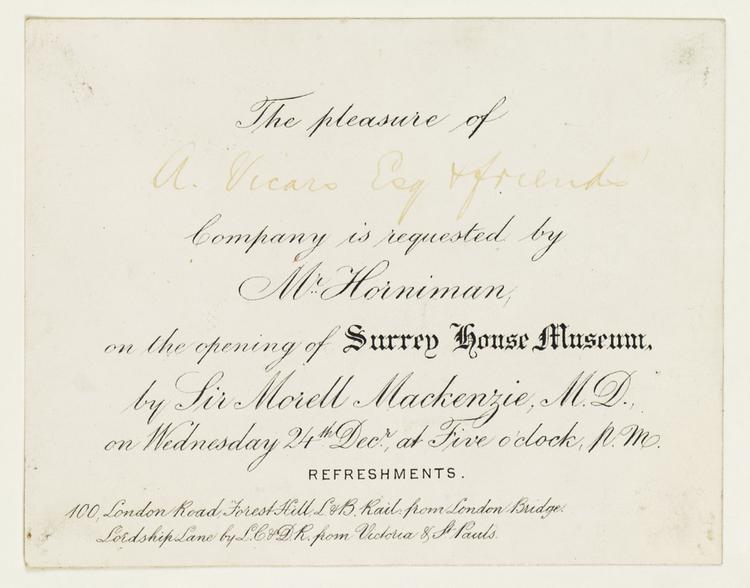 The pleasure of
A. Vicars Esq & friends
Company is requested by
Mr. Horniman,
on the opening of Surrey House Museum,
by Sir Morell Mackenzie, M.D.,
on Wednesday 24th Decr., at Five o'clock, p.m.
REFRESHMENTS.
100, London Road, Forest Hill, L & B. Rail: from London Bridge.
Lordship Lane by L.C & D.R. from Victoria & St. Pauls.